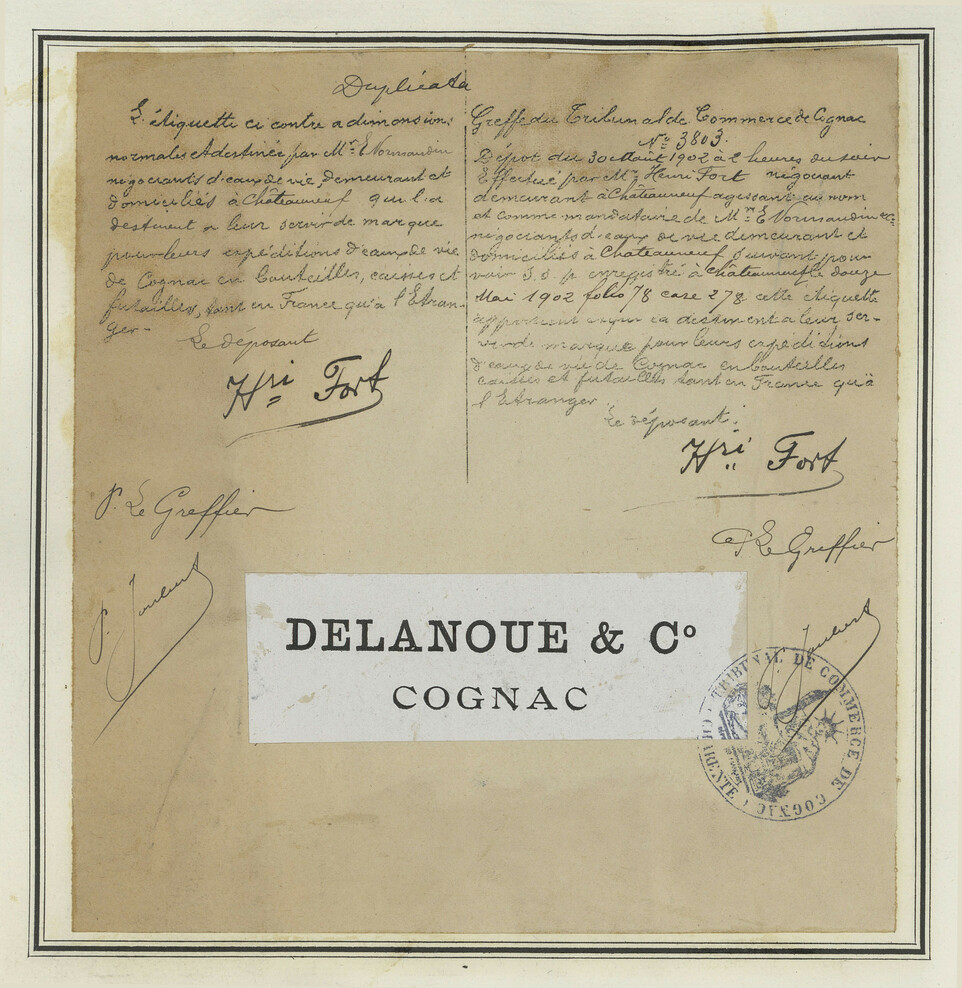 Duplicata
L'étiquette ci contre a dimensions
normales et destinée par Mr. E Normandin
négociants d'eaux de vie, demeurant et
domiciliés à Châteauneuf qui la
destinent a leur servir de marque
pour leurs expéditions d'eaux de vie
de Cognac en bouteilles, caisses et
futailles, tant en France qu'à l'Etran-
ger-
Le déposant
Hri Fort
P. Le Greffier
P. Joubert
Greffe du Tribunal de Commerce de Cognac
No 3803.
Dépot du 30 Août 1902 à 2 heures du soir
Effectué par Mr Henri Fort négociant
demeurant à Châteauneuf agissant au nom
et comme mandataire de Mr. E Normandin &Cie
négociants d'eaux de vie demeurant et
domiciliés à Châteauneuf Suivant pou-
voir S.S.p enregistré à Châteauneuf le douze
Mai 1902 folio 78 case 278 cette étiquette
destinent a leur ser-
vir de marque pour leurs expéditions
d'eaux de vie de Cognac en bouteilles
caisses et futailles tant en France qu'à
l'Etranger.
Le déposant.
Hri Fort
P Le Greffier
P. Joubert
DELANOUE & Co
COGNAC
TRIBUNAL DE COMMERCE DE COGNAC
CHARENTE